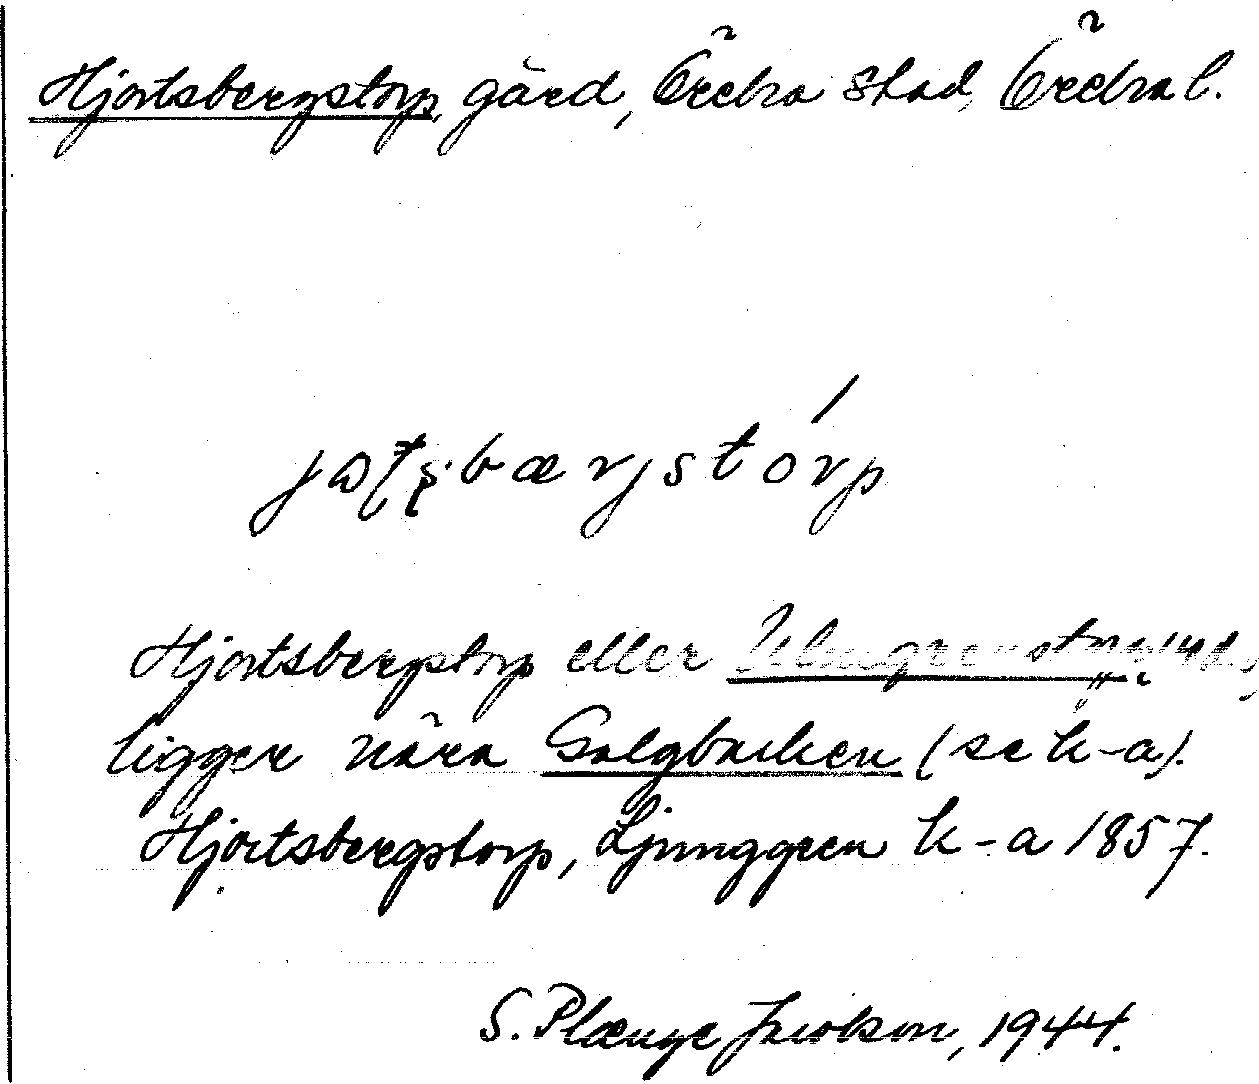 Hjortsbergstorp, gård, Örebro stad, Örebro l.
Hjortsbergstorp eller
ligger nära Galgbacken (se k-a).
Hjortsbergstorp, Ljunggren k-a 1857.
S. Plænge Jacobson, 1944.